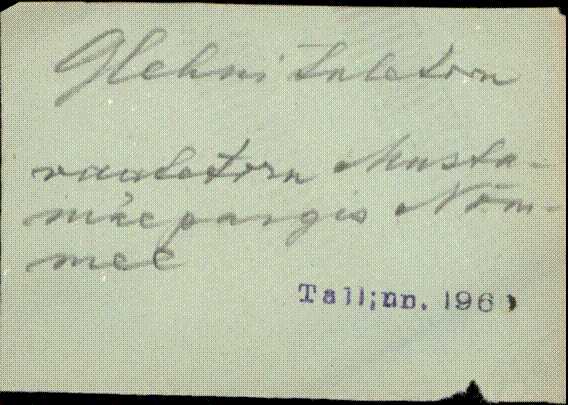 Glehni tuletorn
vaatetorn Musta-
mäe pargis Nõm-
mel
Tallinn. 196